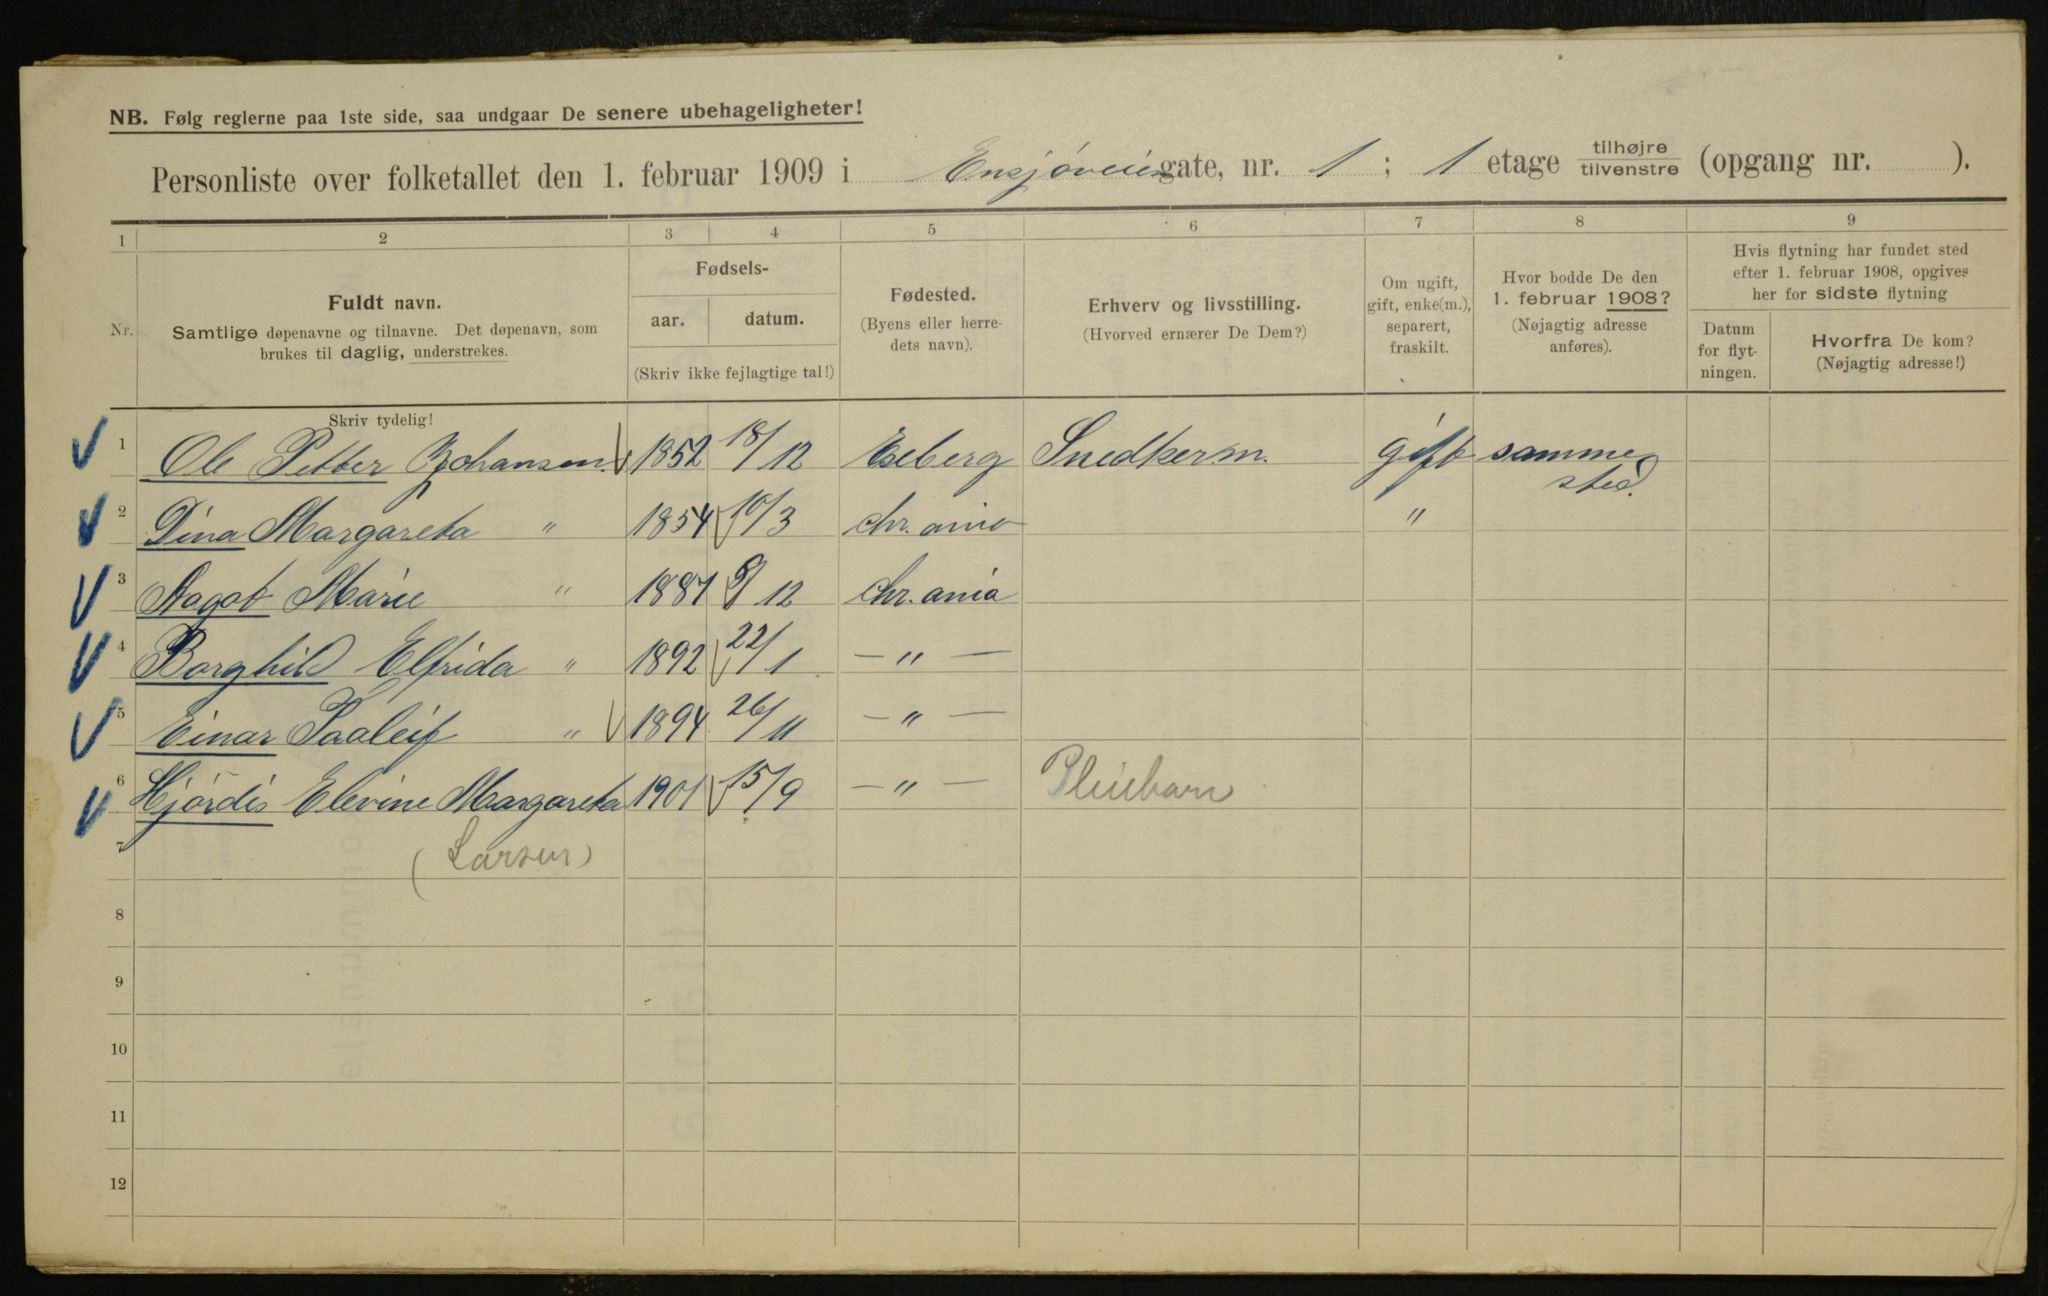 NB. Følg reglerne paa 1ste side, saa undgaar De senere ubehageligheter!
Personliste over folketallet den 1. februar 1909 i Ensjøveien gate, nr. 1 ; 1 etage tilhøjre/tilvenstre (opgang nr. ).
1 2 3 4 5 6 7 8 9
Nr.
Fuldt navn.
Samtlige døpenavne og tilnavne. Det døpenavn, som
brukes til daglig, understrekes.
Fødsels-
aar. datum.
(Skriv ikke fejlagtige tal!)
Fødested.
(Byens eller herre-
dets navn).
Erhverv og livsstilling.
(Hvorved ernærer De Dem?)
Om ugift,
gift, enke(m.),
separert,
fraskilt.
Hvor bodde De den
1. februar 1908?
(Nøjagtig adresse
anføres).
Hvis flytning har fundet sted
efter 1. februar 1908, opgives
her for sidste flytning
Datum
for flyt-
ningen.
Hvorfra De kom?
(Nøjagtig adresse!)
Skriv tydelig!
1 Ole Petter Johansen 1852 18/12 Eseberg Snedkerm. gift samme
sted.
2 Dina Margareta " 1854 10/3 Chr.ania "
3 Aagot Marie " 1887 8/12 Chr.ania
4 Borghild Elfrida " 1892 22/1 — " —
5 Einar Taaleif " 1894 26/11 — " —
6 Hjørdis Elevine Margareta 1901 15/9 — " — Pleiebarn
7 (Larsen)
8
9
10
11
12